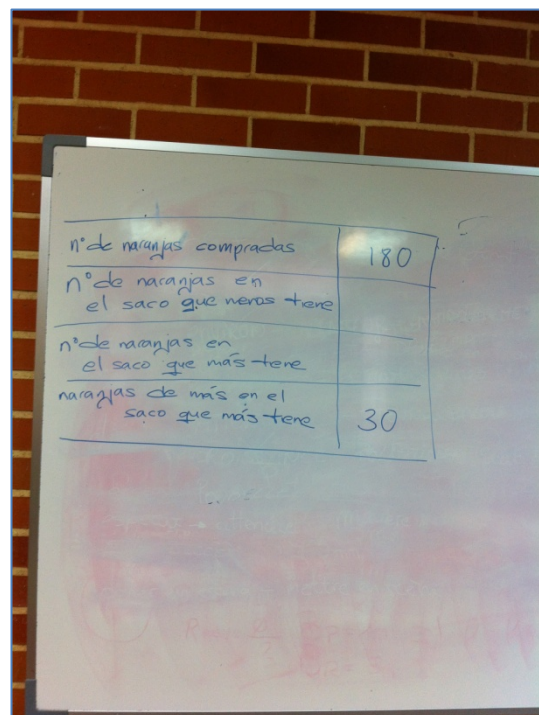 nº de naranjas compradas 180
nº de naranjas en
el saco que menos tiene
nº de naranjas en
el saco que más tiene
naranjas de más en el
saco que más tiene 30